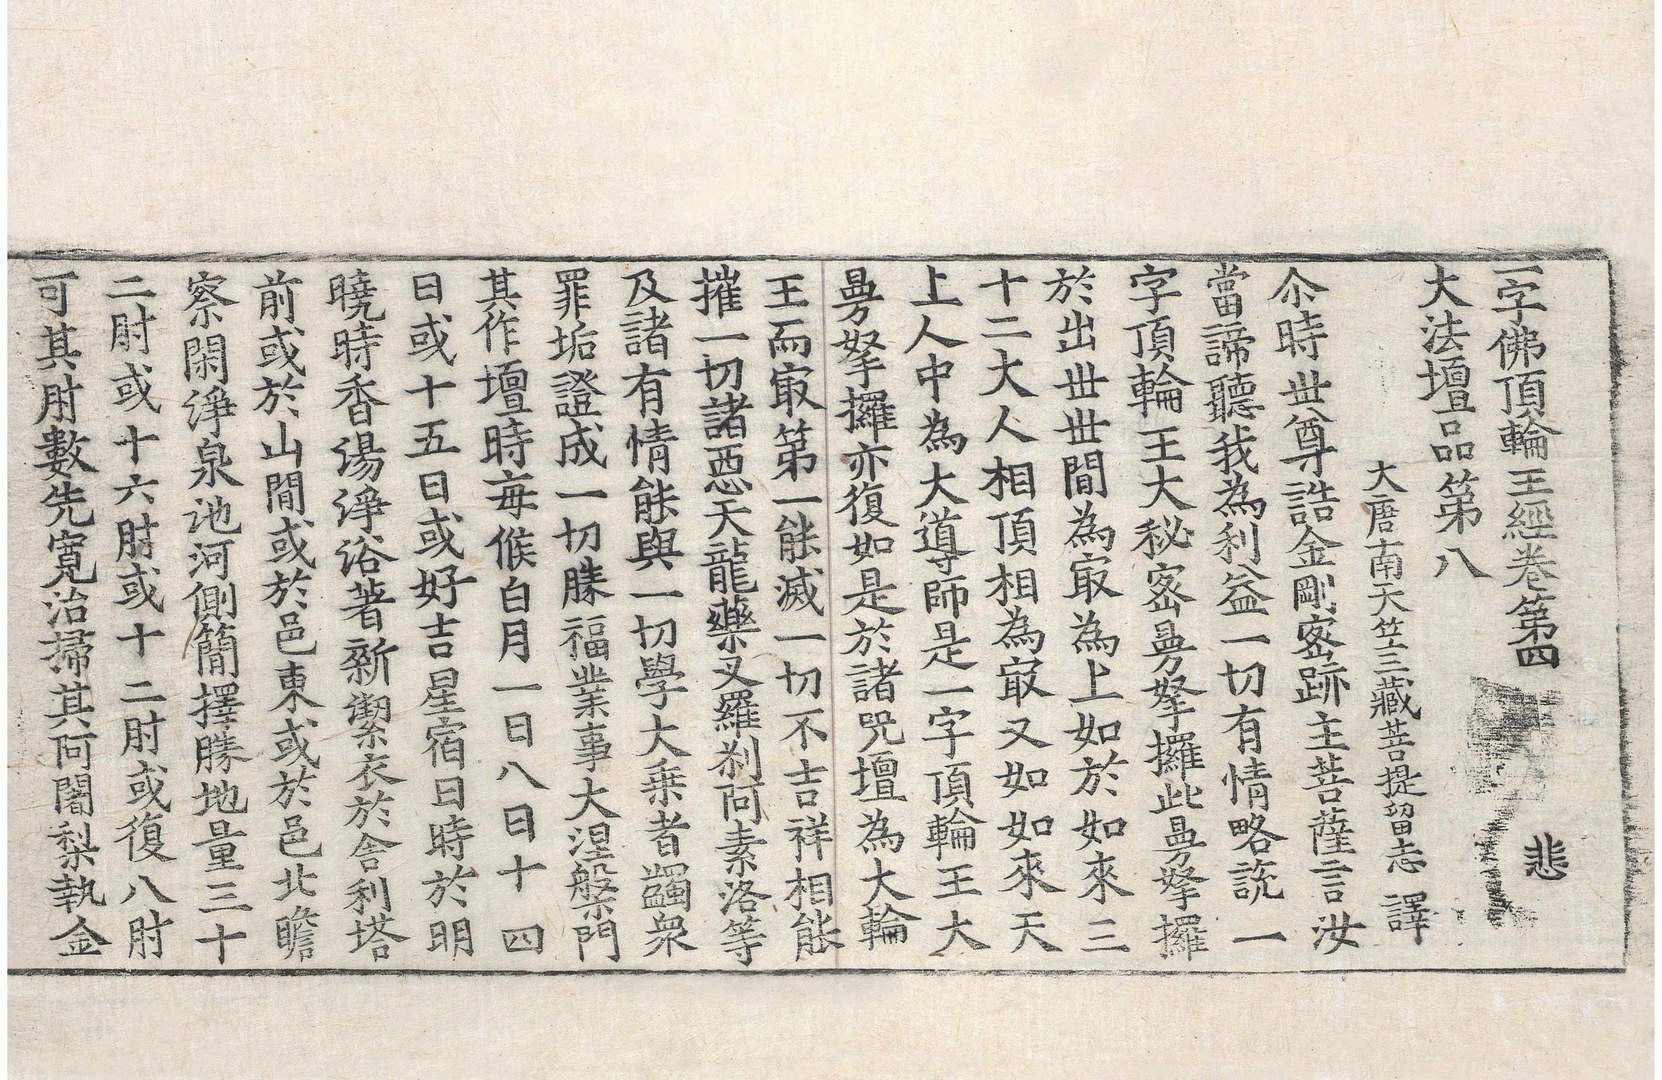 一字佛頂輪王經卷第四 悲
大法壇品第八
大唐南天竺三藏菩提留志 譯
尒時丗尊誥金剛宻跡主菩薩言汝
當諦聽我為利益一切有情略說一
字頂輪王大秘宻曼拏攞此曼拏攞
於出丗丗間為㝡為上如於如來三
十二大人相頂相為㝡又如如來天
上人中為大導師是一字頂輪王大
曼拏攞亦復如是於諸呪壇為大輪
王而㝡第一能滅一切不吉祥相能
摧一切諸惡天龍藥叉羅刹阿素洛等
及諸有情能與一切學大乗者蠲衆
罪垢證成一切勝福業事大涅槃門
其作壇時每候白月一日八日十四
日或十五日或好吉星宿日時於明
曉時香湯淨浴著新潔衣於舍利塔
前或於山間或於邑東或於邑北瞻
察閑淨泉池河側簡擇勝地量三十
二肘或十六肘或十二肘或復八肘
可其肘數先寬治掃其阿闍梨執金